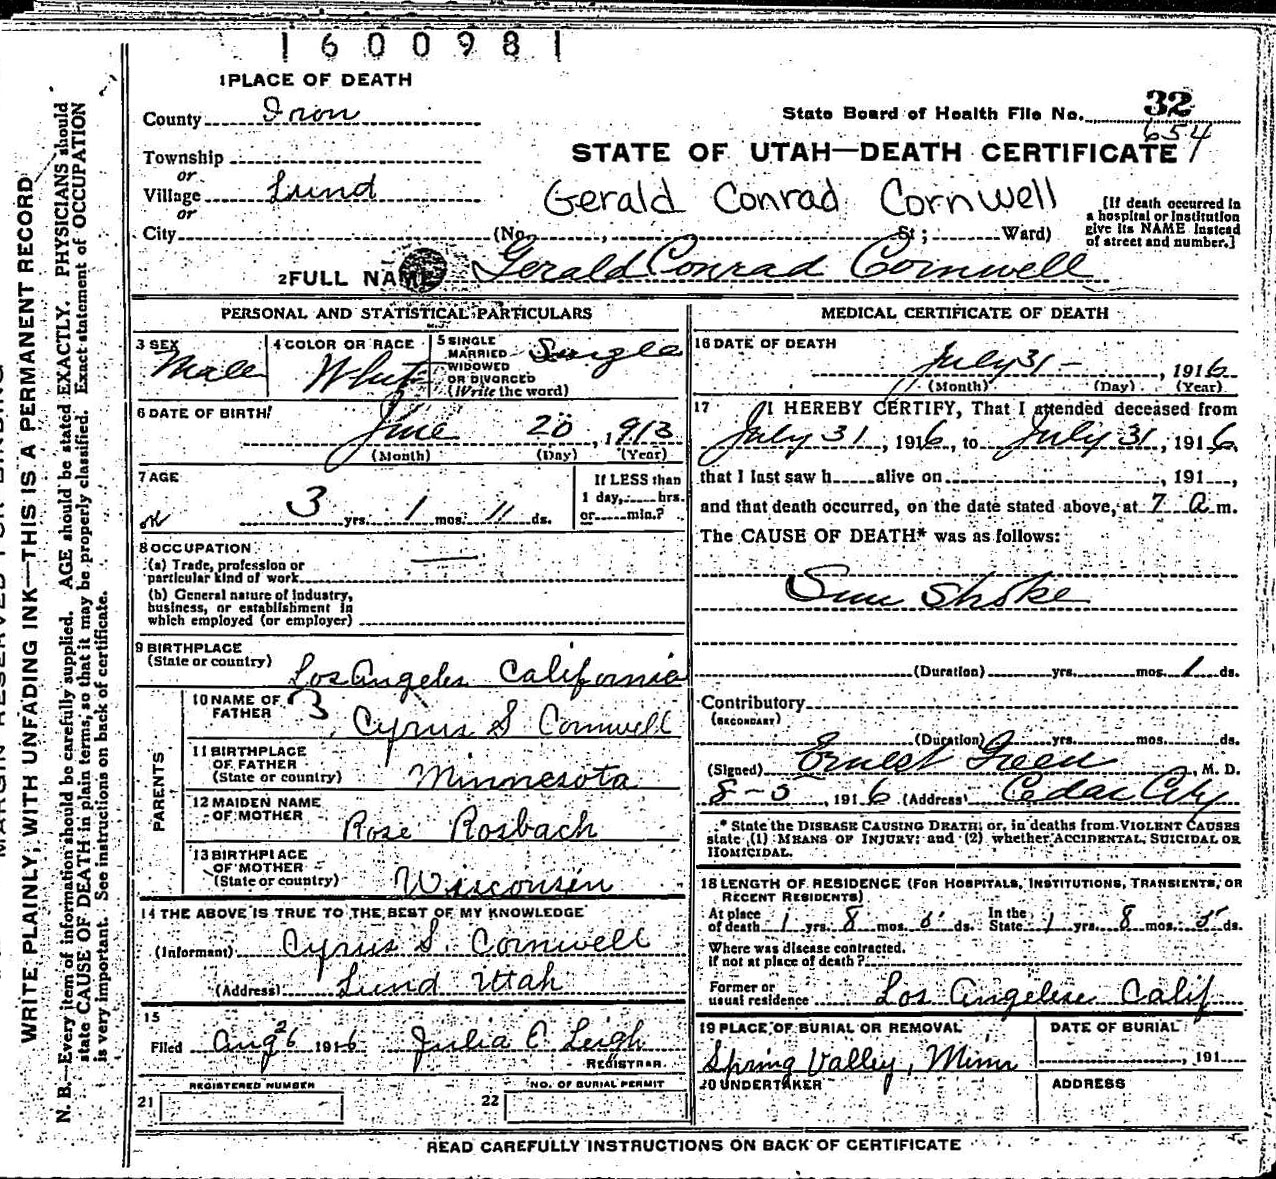 1600981
1 PLACE OF DEATH
County Iron
State Board of Health File No. 32
654
Township
or
Village Lund
or
City (No. , St ; Ward)
STATE OF UTAH—DEATH CERTIFICATE
Gerald Conrad Cornwell
[If death occurred in
a hospital or institution
give its NAME instead
of street and number.]
2 FULL NAME Gerald Conrad Cornwell
PERSONAL AND STATISTICAL PARTICULARS
3 SEX
Male
4 COLOR OR RACE
White
5 SINGLE
MARRIED
WIDOWED
OR DIVORCED
(Write the word)
Single
6 DATE OF BIRTH
June 20, 1913
(Month) (Day) (Year)
7 AGE
3 yrs. 1 mos. 11 ds.
If LESS than
1 day, hrs.
or min.?
8 OCCUPATION
(a) Trade, profession or
particular kind of work
(b) General nature of industry,
business, or establishment in
which employed (or employer)
9 BIRTHPLACE
(State or country) Los Angeles California
PARENTS
10 NAME OF
FATHER 3 Cyrus S Cornwell
11 BIRTHPLACE
OF FATHER
(State or country) Minnesota
12 MAIDEN NAME
OF MOTHER Rose Rosbach
13 BIRTHPLACE
OF MOTHER
(State or country) Wisconsin
14 THE ABOVE IS TRUE TO THE BEST OF MY KNOWLEDGE
(Informant) Cyrus S. Cornwell
(Address) Lund Utah
15
Filed Aug 26 1916 Julia C Leigh
REGISTRAR.
REGISTERED NUMBER
21
NO. OF BURIAL PERMIT
22
MEDICAL CERTIFICATE OF DEATH
16 DATE OF DEATH
July 31 - , 1916
(Month) (Day) (Year)
17 I HEREBY CERTIFY, That I attended deceased from
July 31, 1916, to July 31, 1916,
that I last saw h alive on , 191 ,
and that death occurred, on the date stated above, at 7 a m.
The CAUSE OF DEATH* was as follows:
Sun Stroke
(Duration) yrs. mos. 1 ds.
Contributory
(SECONDARY)
(Duration) yrs. mos. ds.
(Signed) Ernest Green, M. D.
8-5, 1916 (Address) Cedar City
* State the DISEASE CAUSING DEATH; or, in deaths from VIOLENT CAUSES
state (1) MEANS OF INJURY; and (2) whether ACCIDENTAL, SUICIDAL OR
HOMICIDAL.
18 LENGTH OF RESIDENCE (FOR HOSPITALS, INSTITUTIONS, TRANSIENTS, OR
RECENT RESIDENTS)
At place of death 1 yrs. 8 mos. 5 ds. In the State 1 yrs. 8 mos. 5 ds.
Where was disease contracted.
if not at place of death?
Former or
usual residence Los Angeles Calif
19 PLACE OF BURIAL OR REMOVAL
Spring Valley, Minn
DATE OF BURIAL
, 191
20 UNDERTAKER
ADDRESS
READ CAREFULLY INSTRUCTIONS ON BACK OF CERTIFICATE
WRITE PLAINLY, WITH UNFADING INK—THIS IS A PERMANENT RECORD
N. B.—Every item of information should be carefully supplied. AGE should be stated EXACTLY. PHYSICIANS should
state CAUSE OF DEATH in plain terms, so that it may be properly classified. Exact statement of OCCUPATION
is very important. See instructions on back of certificate.